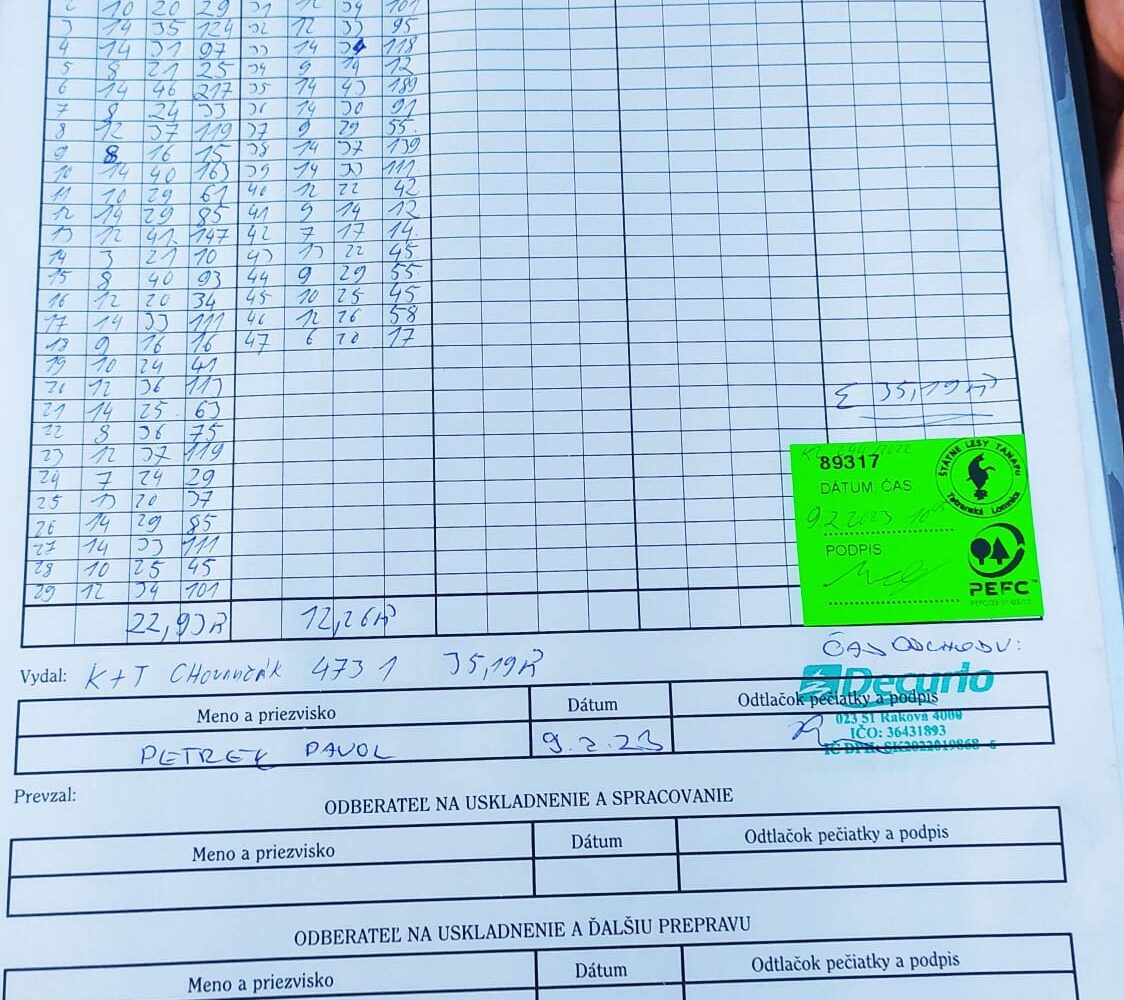 2 10 20 29 31 12 34 101
3 14 35 124 32 12 33 95
4 14 31 97 33 14 34 118
5 8 21 25 34 9 14 12
6 14 46 217 35 14 43 189
7 8 24 33 36 14 30 91
8 12 37 119 37 9 29 55
9 8 16 15 38 14 37 139
10 14 40 163 39 14 33 111
11 10 29 61 40 12 22 42
12 14 29 85 41 9 14 12
13 12 41 147 42 7 17 14
14 3 21 10 43 13 22 45
15 8 40 93 44 9 29 55
16 12 20 34 45 10 25 45
17 14 33 111 46 12 26 58
18 9 16 16 47 6 20 17
19 10 24 41
20 12 36 113
Σ 35,19 m³
21 14 25 63
22 8 36 75
23 12 37 119
24 7 24 29
25 13 20 37
26 14 29 85
27 14 33 111
28 10 25 45
29 12 34 101
22,93 m³ 12,26 m³
89317
ŠTÁTNE LESY TANAPU
Tatranská Lomnica
DÁTUM: ČAS:
9.2.2023 10 45
PODPIS
PEFC™
ČAS ODCHODU:
Vydal: K+T CHOVANČÁK 4731 35,19 m³
Decurio
Meno a priezvisko Dátum Odtlačok pečiatky a podpis
023 51 Raková 4000
IČO: 36431893
IČ DPH: SK2022019868
PETREK PAVOL 9.2.23
Prevzal:
ODBERATEĽ NA USKLADNENIE A SPRACOVANIE
Meno a priezvisko Dátum Odtlačok pečiatky a podpis
ODBERATEĽ NA USKLADNENIE A ĎALŠIU PREPRAVU
Meno a priezvisko Dátum Odtlačok pečiatky a podpis